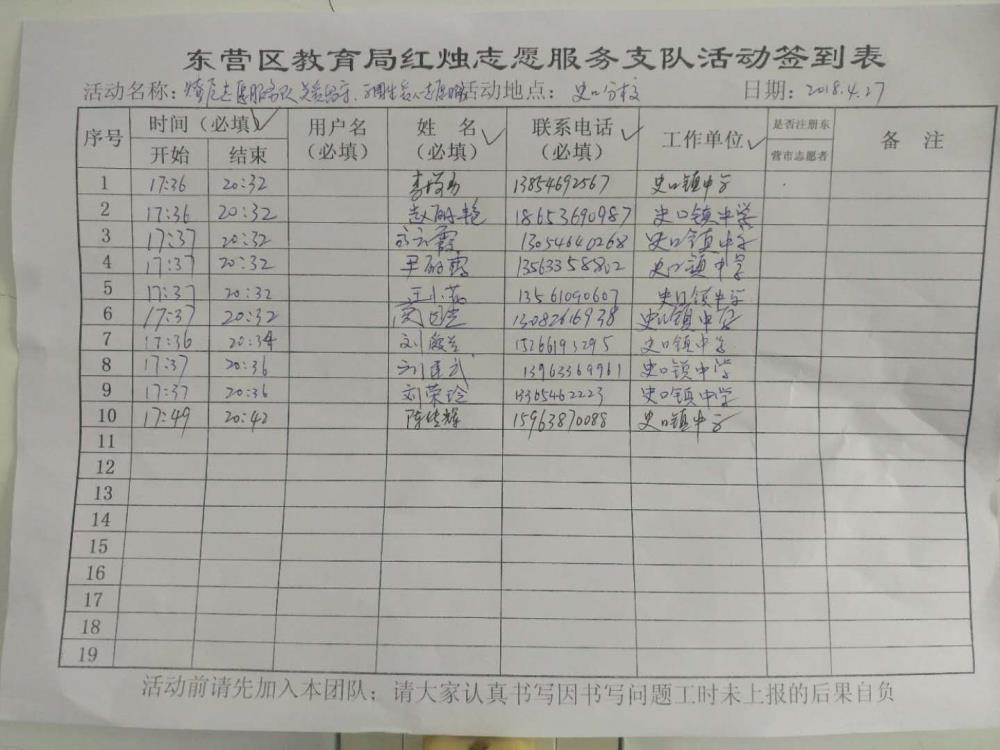 东营区教育局红烛志愿服务支队活动签到表
活动名称： 志愿服务队 活动地点： 史口分校 日期：2018.4.27
序号 时间（必填） 用户名（必填） 姓名（必填） 联系电话（必填） 工作单位 是否注册东营市志愿者 备注
开始 结束
1 17:36 20:32 13854692567 史口镇中学
2 17:36 20:32 赵丽艳 18653690987 史口镇中学
3 17:37 20:32 13054640268 史口镇中学
4 17:37 20:32 13563358802 史口镇中学
5 17:37 20:32 王小 13561090607 史口镇中学
6 17:37 20:32 13082616938 史口镇中学
7 17:36 20:34 刘 15266193295 史口镇中学
8 17:37 20:36 刘建武 13963369961 史口镇中学
9 17:37 20:36 刘荣珍 13365462223 史口镇中学
10 17:49 20:42 陈佳辉 15963870088 史口镇中学
11
12
13
14
15
16
17
18
19
活动前请先加入本团队；请大家认真书写因书写问题工时未上报的后果自负